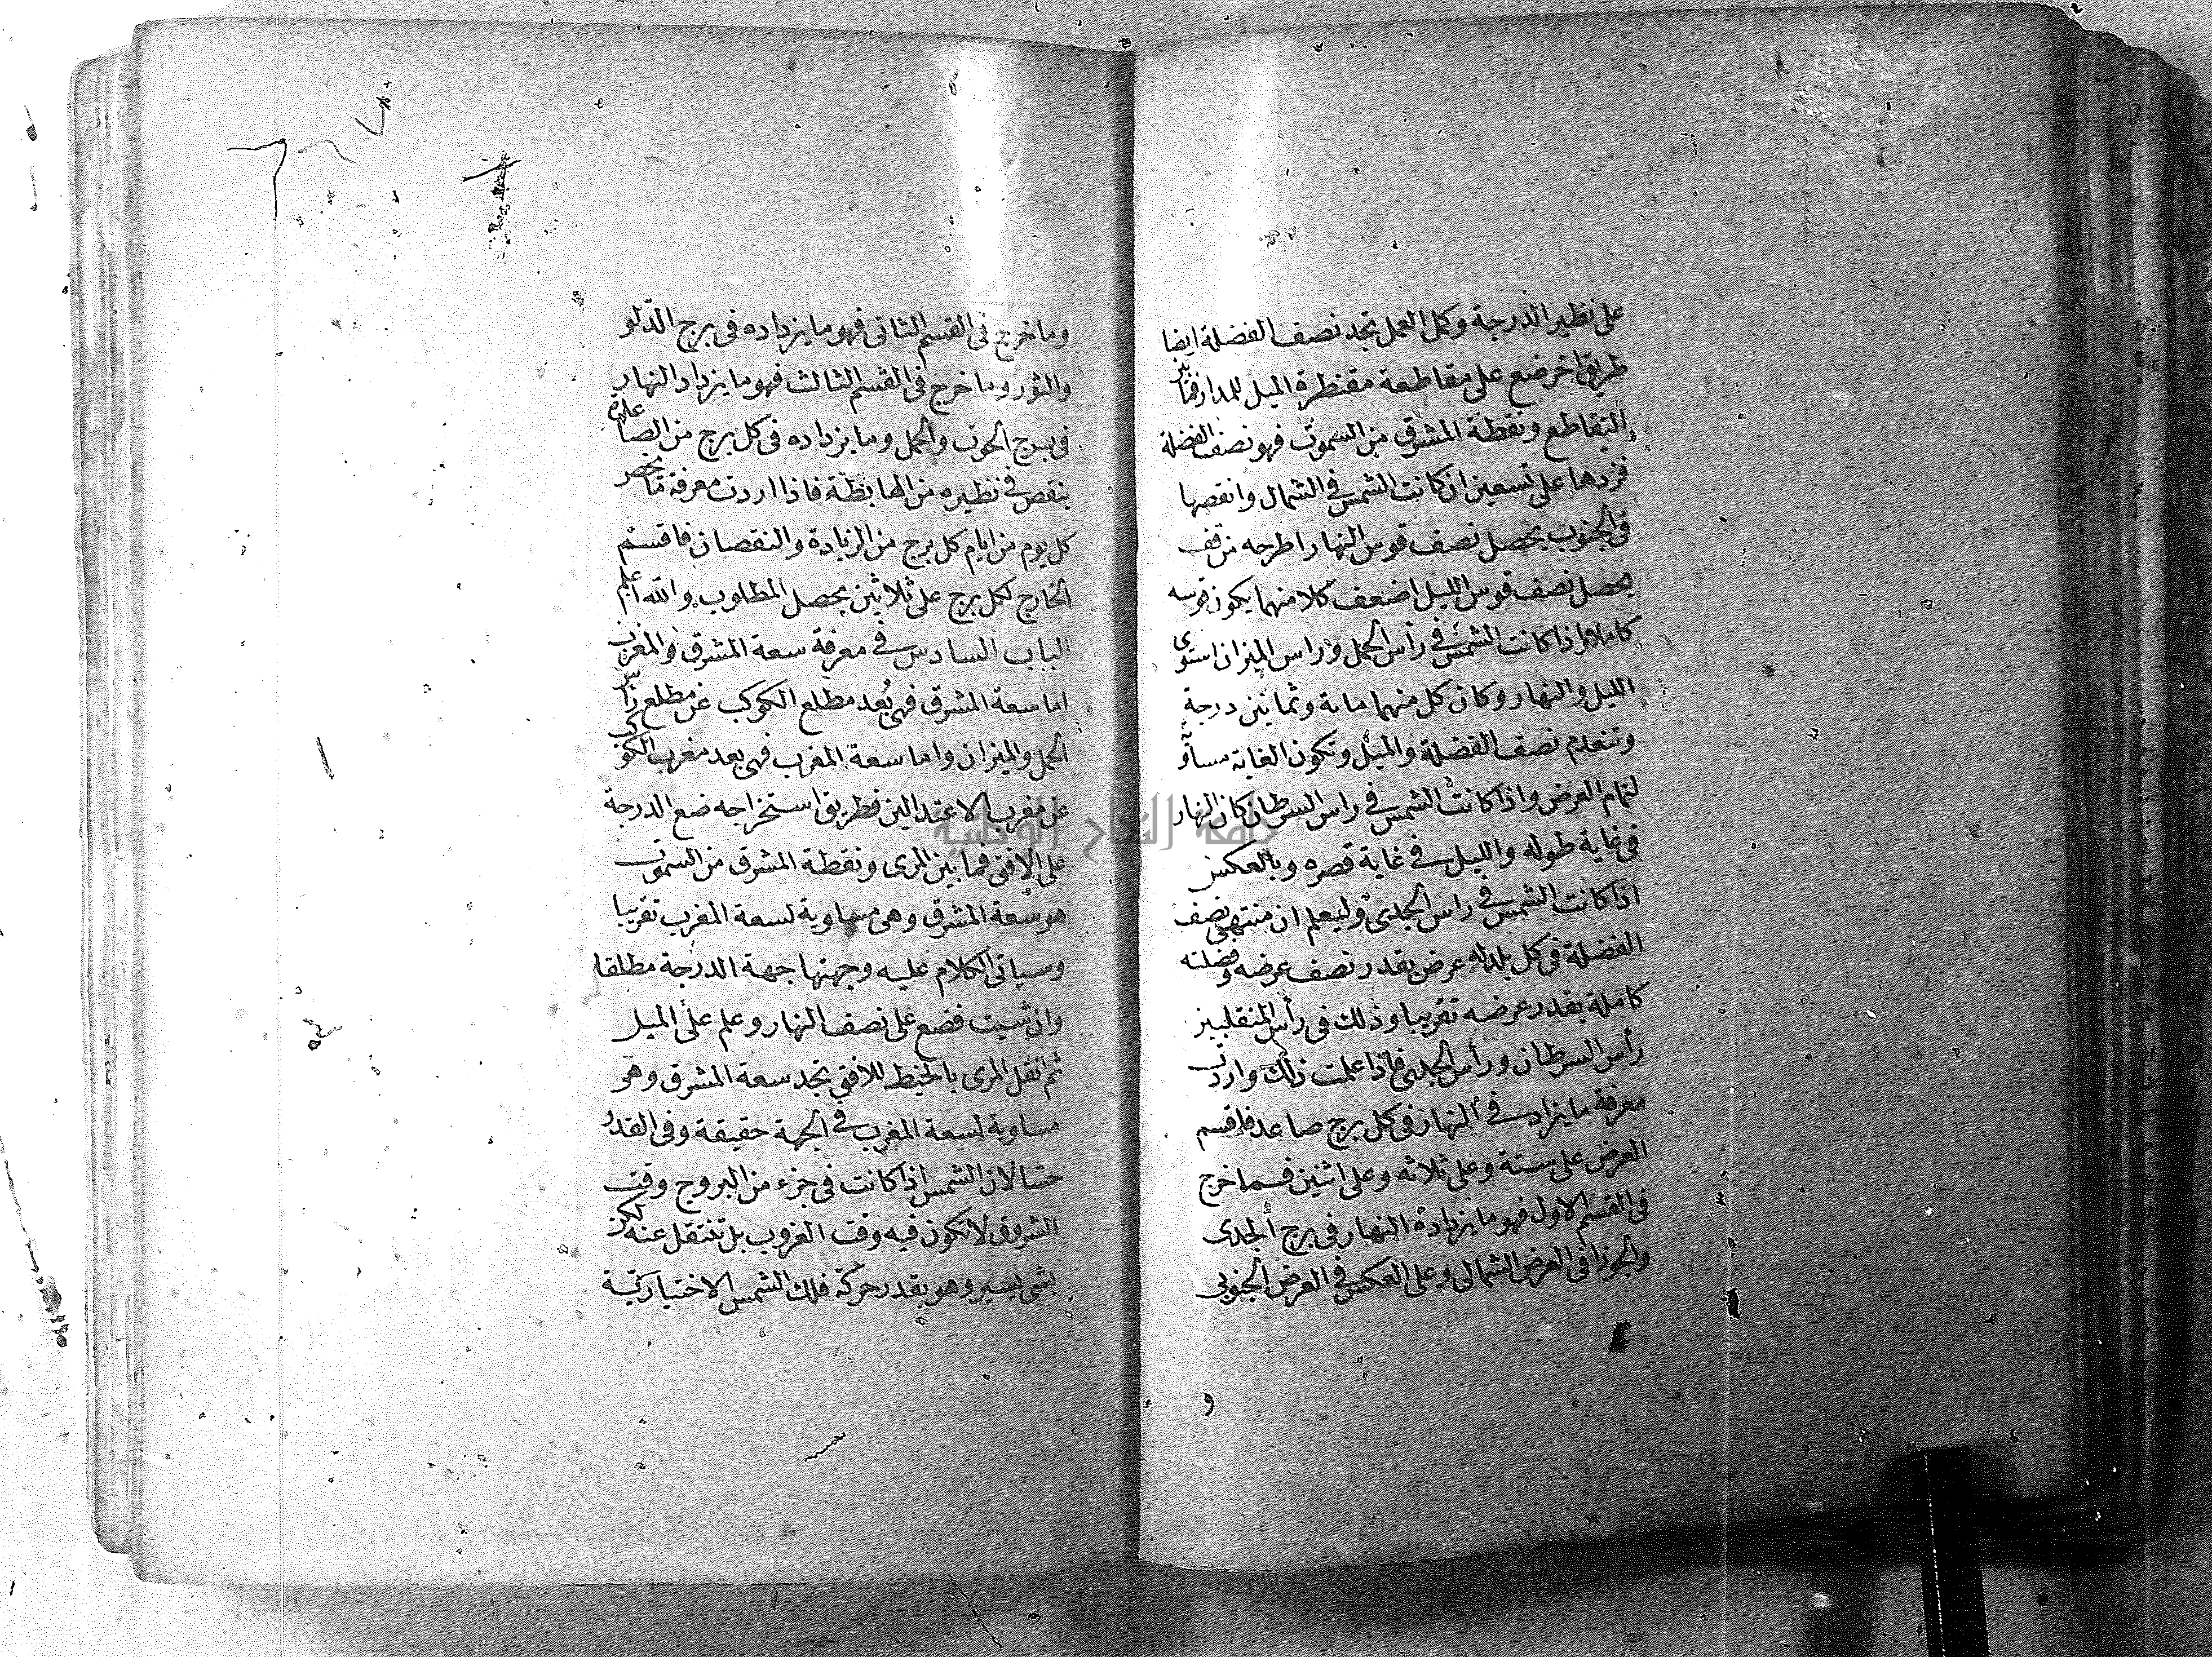 على نظير الدرجة وكمل العمل تجد نصف الفضلة ايضا
طريق اخر ضع على مقاطعة مقنطرة الميل للمدار فما بين
التقاطع ونقطة المشرق من السموت فهو نصف الفضلة
فزدها على تسعين ان كانت الشمس في الشمال وانقصها
في الجنوب يحصل نصف قوس النهار اطرحه من قف
يحصل نصف قوس الليل اضعف كلا منهما يكون قوسه
كاملا واذا كانت الشمس في رأس الحمل وراس الميزان استوى
الليل والنهار وكان كل منهما ماية وثمانين درجة
وتنعدم نصف الفضلة والميل وتكون الغاية مساو
لتمام العرض واذا كانت الشمس في راس السرطان كان النهار
في غاية طوله والليل في غاية قصره وبالعكس
اذا كانت الشمس في راس الجدى وليعلم ان منتهى نصف
الفضلة في كل بلد له عرض بقدر نصف عرضه وفضلته
كاملة بقدر عرضه تقريبا وذلك في رأس المنقلبين
رأس السرطان ورأس الجدى فاذا علمت ذلك واردت
معرفة ما يزاد في النهار في كل برج صاعد فاقسم
العرض على ستة وعلى ثلاثه وعلى اثنين فما خرج
في القسم الاول فهو ما يزداده النهار في برج الجدى
والجوزا في العرض الشمالى وعلى العكس في العرض الجنوبي
و
وما خرج في القسم الثانى فهو ما يزداده في برج الدلو
والثور وما خرج في القسم الثالث فهو ما يزداد النهار
في برج الحوت والحمل وما يزداده في كل برج من الصاعدة
ينقص في نظيره من الهابطة فاذا اردت معرفة ما يخص
كل يوم من ايام كل برج من الزيادة والنقصان فاقسم
الخارج لكل برج على ثلاثين يحصل المطلوب والله اعلم
الباب السادس في معرفة سعة المشرق والمغرب
اما سعة المشرق فهى بُعد مطلع الكوكب عن مطلع راس
الحمل والميزان واما سعة المغرب فهى بعد مغرب الكوكب
عن مغرب الاعتدالين فطريق استخراجه ضع الدرجة
على الافق فما بين المرى ونقطة المشرق من السموت
هو سعة المشرق وهى مساوية لسعة المغرب تقريبا
وسياتى الكلام عليه وجهتها جهة الدرجة مطلقا
وان شيت فضع على نصف النهار وعلم على الميل
ثم انقل المرى بالخيط للافق تجد سعة المشرق وهو
مساوية لسعة المغرب في الجهة حقيقة وفى القدر
حسا لان الشمس اذا كانت في جزء من البروج وقت
الشروق لا تكون فيه وقت الغروب بل تنتقل عنه لكن
بشى يسير وهو بقدر حركة فلك الشمس الاختياركية
جامعة النجاح الوطنية